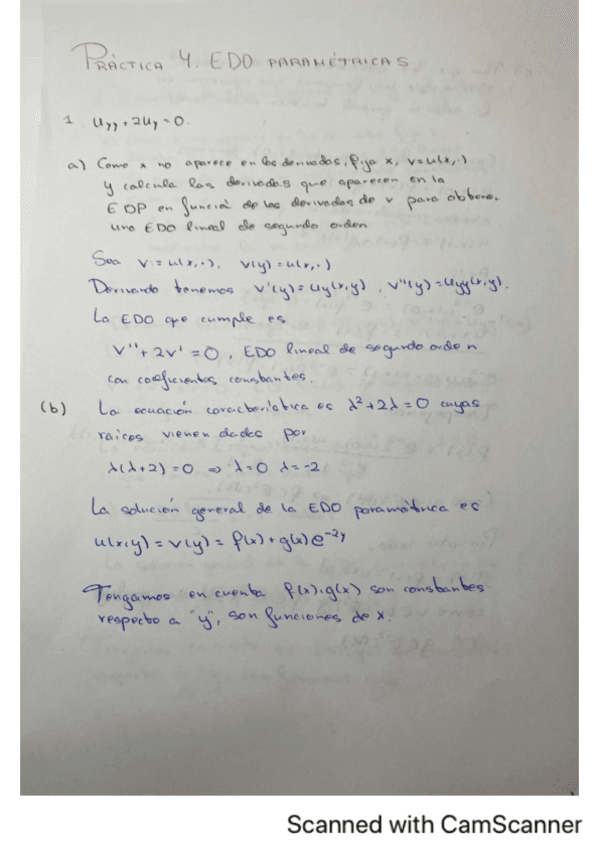 PRÁCTICA 4. EDO PARAMÉTRICAS
1 Uyy + 2Uy = 0.
a) Como x no aparece en las derivadas, fija x, v=u(x,·)
y calcula las derivadas que aparecen en la
EDP en función de las derivadas de v para obtener
una EDO lineal de segundo orden
Sea v := u(x,·), v(y) = u(x,·)
Derivando tenemos v'(y) = Uy(x,y), v''(y) = Uyy(x,y).
La EDO que cumple es
v'' + 2v' = 0, EDO lineal de segundo orden
con coeficientes constantes.
(b) La ecuación característica es λ² + 2λ = 0 cuyas
raices vienen dadas por
λ(λ+2) = 0 => λ=0 λ=-2
La solución general de la EDO paramétrica es
u(x,y) = v(y) = f(x) + g(x)e⁻²ʸ
Tengamos en cuenta f(x), g(x) son constantes
respecto a "y", son funciones de x.
Scanned with CamScanner